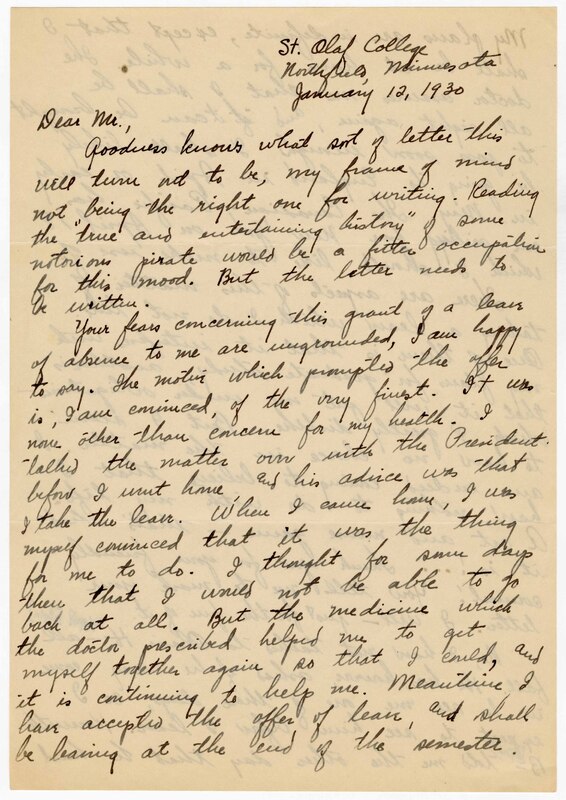 St. Olaf College
Northfield, Minnesota
January 12, 1930
Dear Mr.,
Goodness knows what sort of letter this
will turn out to be, my frame of mind
not being the right one for writing. Reading
the "true and entertaining history" of some
notorious pirate would be a fitter occupation
for this mood. But the letter needs to
be written.
Your fears concerning this grant of a leave
of absence to me are ungrounded, I am happy
to say. The motive which prompted the offer
is, I am convinced, of the very finest. It was
none other than concern for my health. I
talked the matter over with the President
before I went home and his advice was that
I take the leave. When I came home, I was
myself convinced that it was the thing
for me to do. I thought for some days
then that I would not be able to go
back at all. But the medicine which
the doctor prescribed helped me to get
myself together again so that I could, and
it is continuing to help me. Meantime, I
have accepted the offer of leave, and shall
be leaving at the end of the semester.